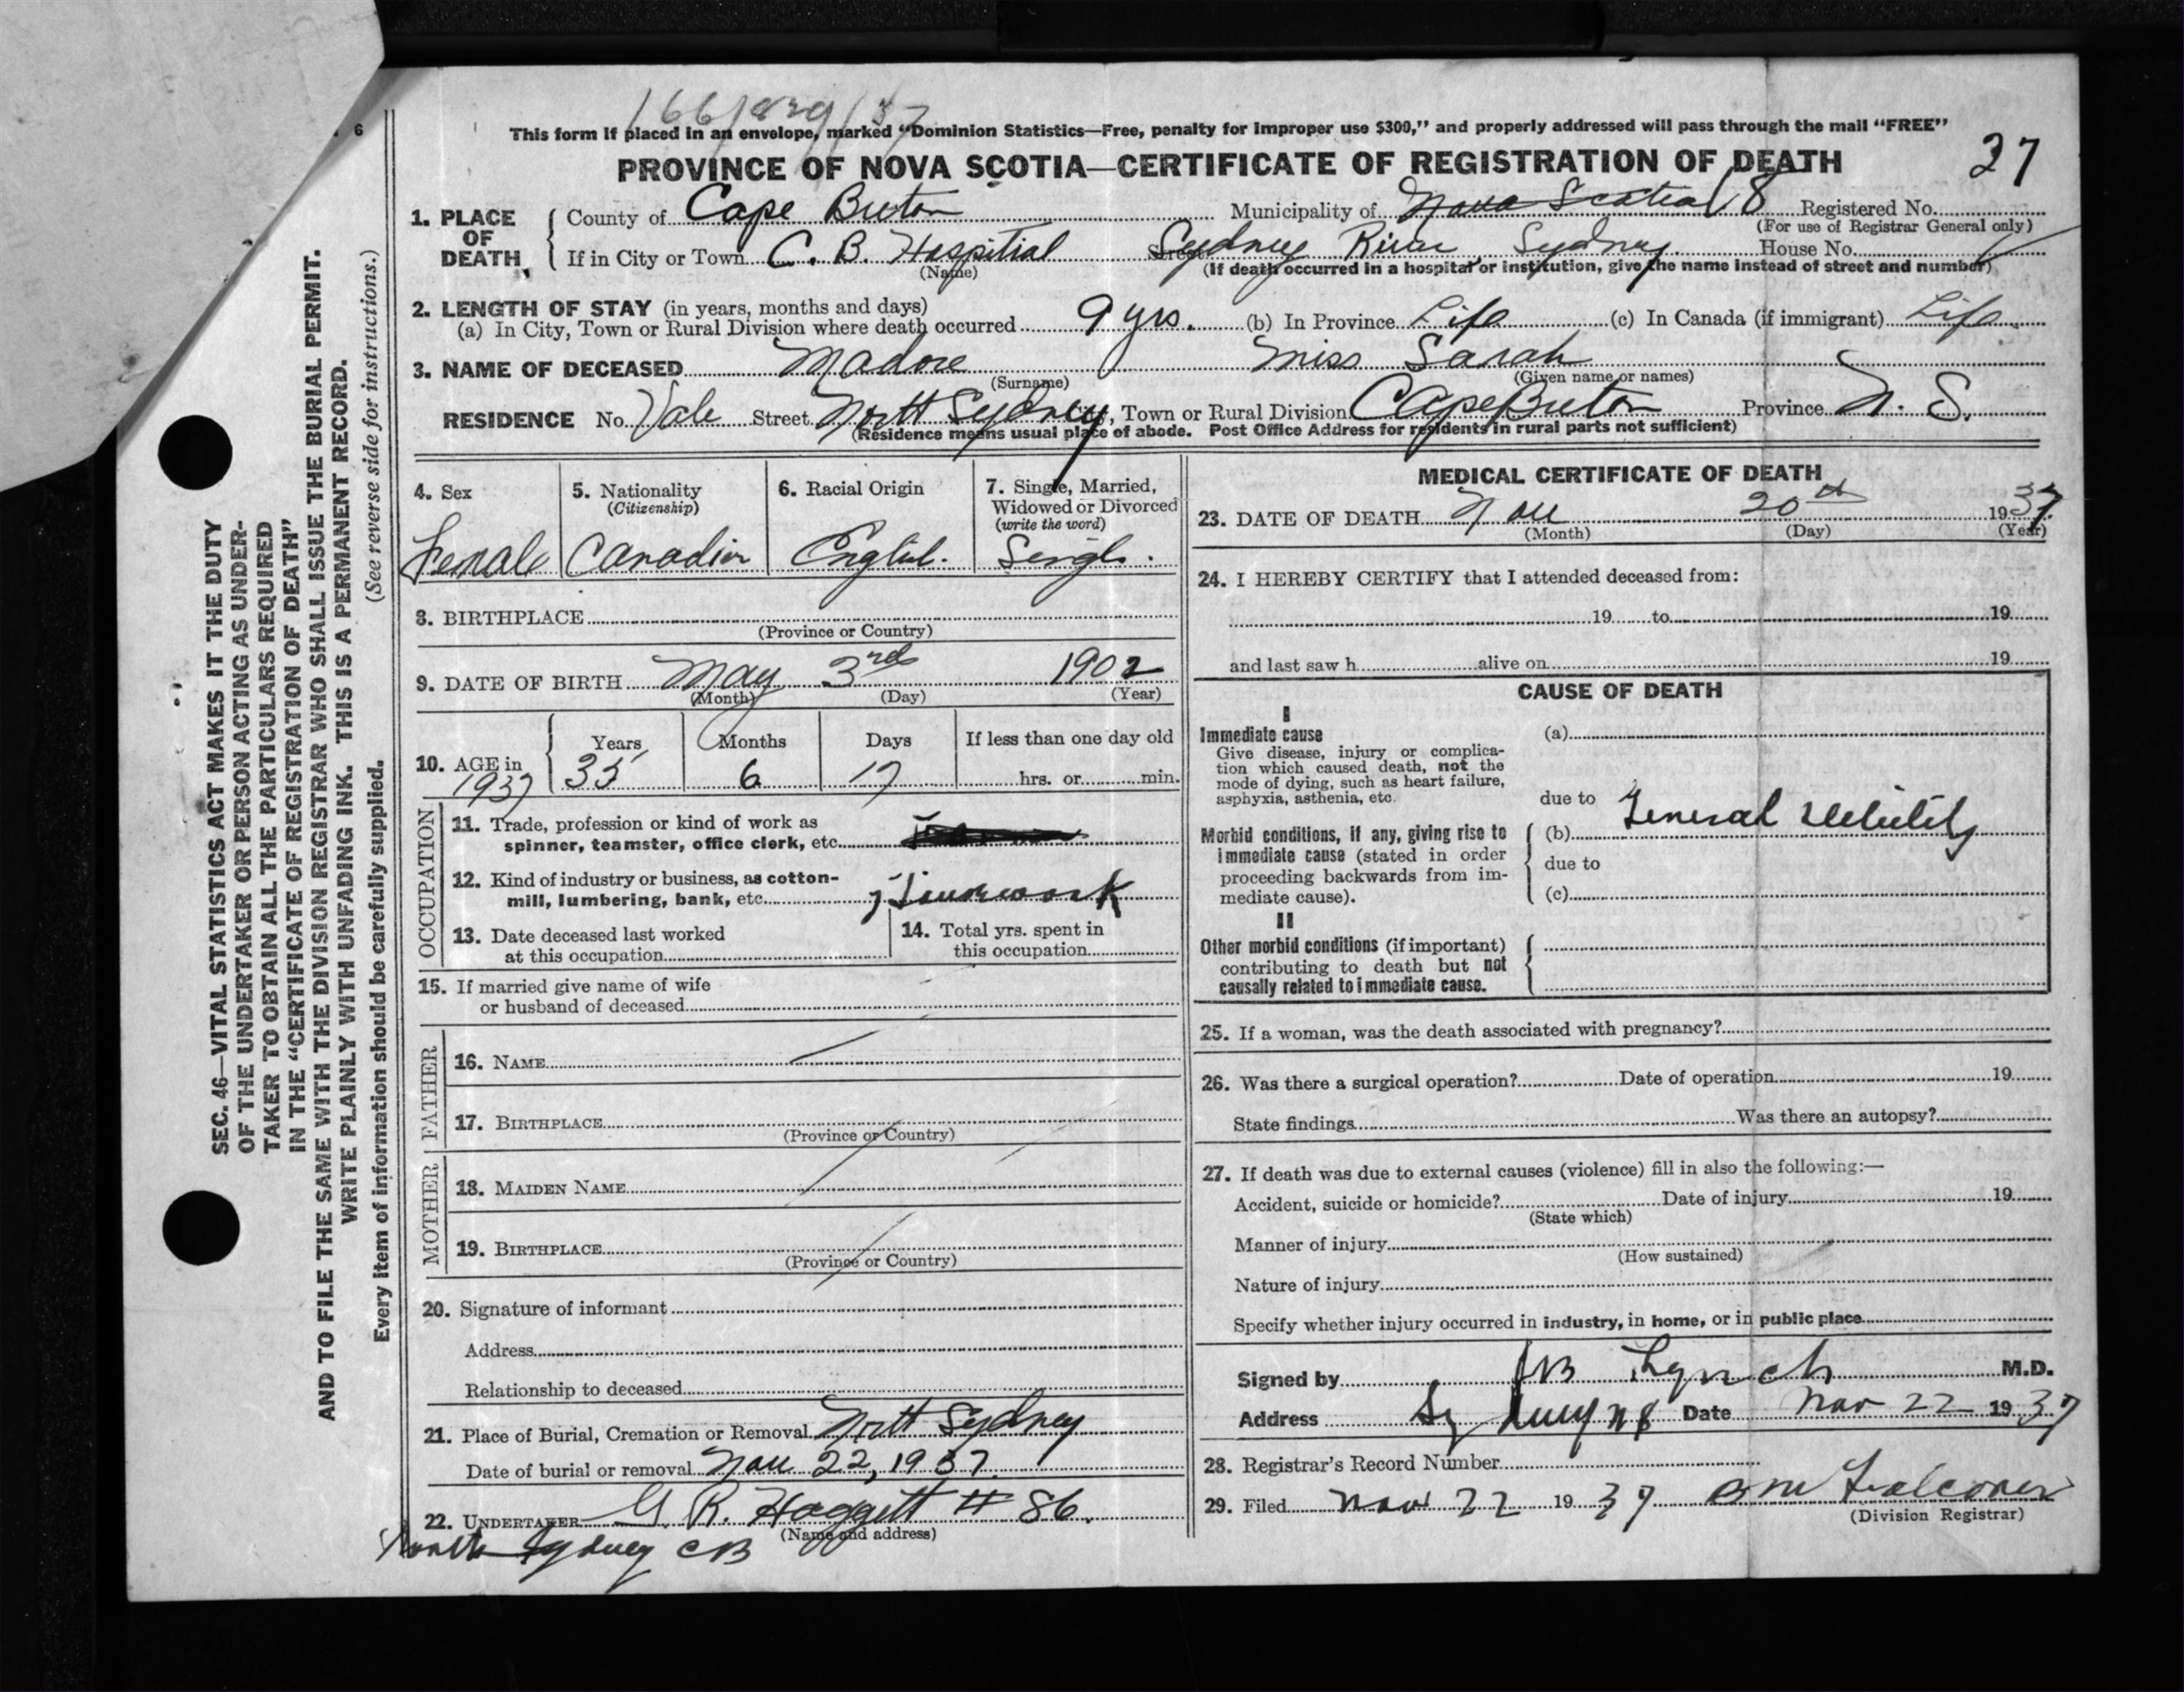 166/829/37
6
This form if placed in an envelope, marked "Dominion Statistics—Free, penalty for improper use $300," and properly addressed will pass through the mail "FREE"
PROVINCE OF NOVA SCOTIA—CERTIFICATE OF REGISTRATION OF DEATH
37
1. PLACE OF DEATH County of Cape Breton Municipality of Nova Scotia 18 Registered No.
(For use of Registrar General only)
If in City or Town C. B. Hospitial Street Sydney River Sydney. House No.
(Name) (If death occurred in a hospital or institution, give the name instead of street and number)
2. LENGTH OF STAY (in years, months and days)
(a) In City, Town or Rural Division where death occurred 9 yrs. (b) In Province Life (c) In Canada (if immigrant) Life
3. NAME OF DECEASED Madore Miss Sarah
(Surname) (Given name or names)
RESIDENCE No. Vale Street North Sydney, Town or Rural Division Cape Breton Province N. S.
(Residence means usual place of abode. Post Office Address for residents in rural parts not sufficient)
4. Sex 5. Nationality 6. Racial Origin 7. Single, Married,
(Citizenship) Widowed or Divorced
(write the word)
Female Canadian English. Single.
8. BIRTHPLACE
(Province or Country)
9. DATE OF BIRTH May 3rd 1902
(Month) (Day) (Year)
10. AGE in Years Months Days If less than one day old
1937 35 6 17 hrs. or min.
OCCUPATION
11. Trade, profession or kind of work as
spinner, teamster, office clerk, etc.
12. Kind of industry or business, as cotton-
mill, lumbering, bank, etc. Housework
13. Date deceased last worked
at this occupation
14. Total yrs. spent in
this occupation
15. If married give name of wife
or husband of deceased
FATHER
16. NAME
17. BIRTHPLACE
(Province or Country)
MOTHER
18. MAIDEN NAME
19. BIRTHPLACE
(Province or Country)
20. Signature of informant
Address
Relationship to deceased
21. Place of Burial, Cremation or Removal North Sydney
Date of burial or removal Nov 22, 1937.
22. UNDERTAKER G. R. Haggett # 86.
(Name and address)
North Sydney CB
MEDICAL CERTIFICATE OF DEATH
23. DATE OF DEATH Nov 20th 1937
(Month) (Day) (Year)
24. I HEREBY CERTIFY that I attended deceased from:
19 to 19
and last saw h alive on 19
CAUSE OF DEATH
I
Immediate cause (a)
Give disease, injury or complica-
tion which caused death, not the
mode of dying, such as heart failure,
asphyxia, asthenia, etc.
due to
Morbid conditions, if any, giving rise to (b) General Debility
immediate cause (stated in order due to
proceeding backwards from im-
mediate cause). (c)
II
Other morbid conditions (if important)
contributing to death but not
causally related to immediate cause.
25. If a woman, was the death associated with pregnancy?
26. Was there a surgical operation? Date of operation 19
State findings Was there an autopsy?
27. If death was due to external causes (violence) fill in also the following:—
Accident, suicide or homicide? Date of injury 19
(State which)
Manner of injury
(How sustained)
Nature of injury
Specify whether injury occurred in industry, in home, or in public place
Signed by JB Lynch M.D.
Address Sydney NS Date Nov 22 1937
28. Registrar's Record Number
29. Filed Nov 22 1937 Falconer
(Division Registrar)
SEC. 46—VITAL STATISTICS ACT MAKES IT THE DUTY
OF THE UNDERTAKER OR PERSON ACTING AS UNDER-
TAKER TO OBTAIN ALL THE PARTICULARS REQUIRED
IN THE "CERTIFICATE OF REGISTRATION OF DEATH"
AND TO FILE THE SAME WITH THE DIVISION REGISTRAR WHO SHALL ISSUE THE BURIAL PERMIT.
WRITE PLAINLY WITH UNFADING INK. THIS IS A PERMANENT RECORD.
Every item of information should be carefully supplied. (See reverse side for instructions.)